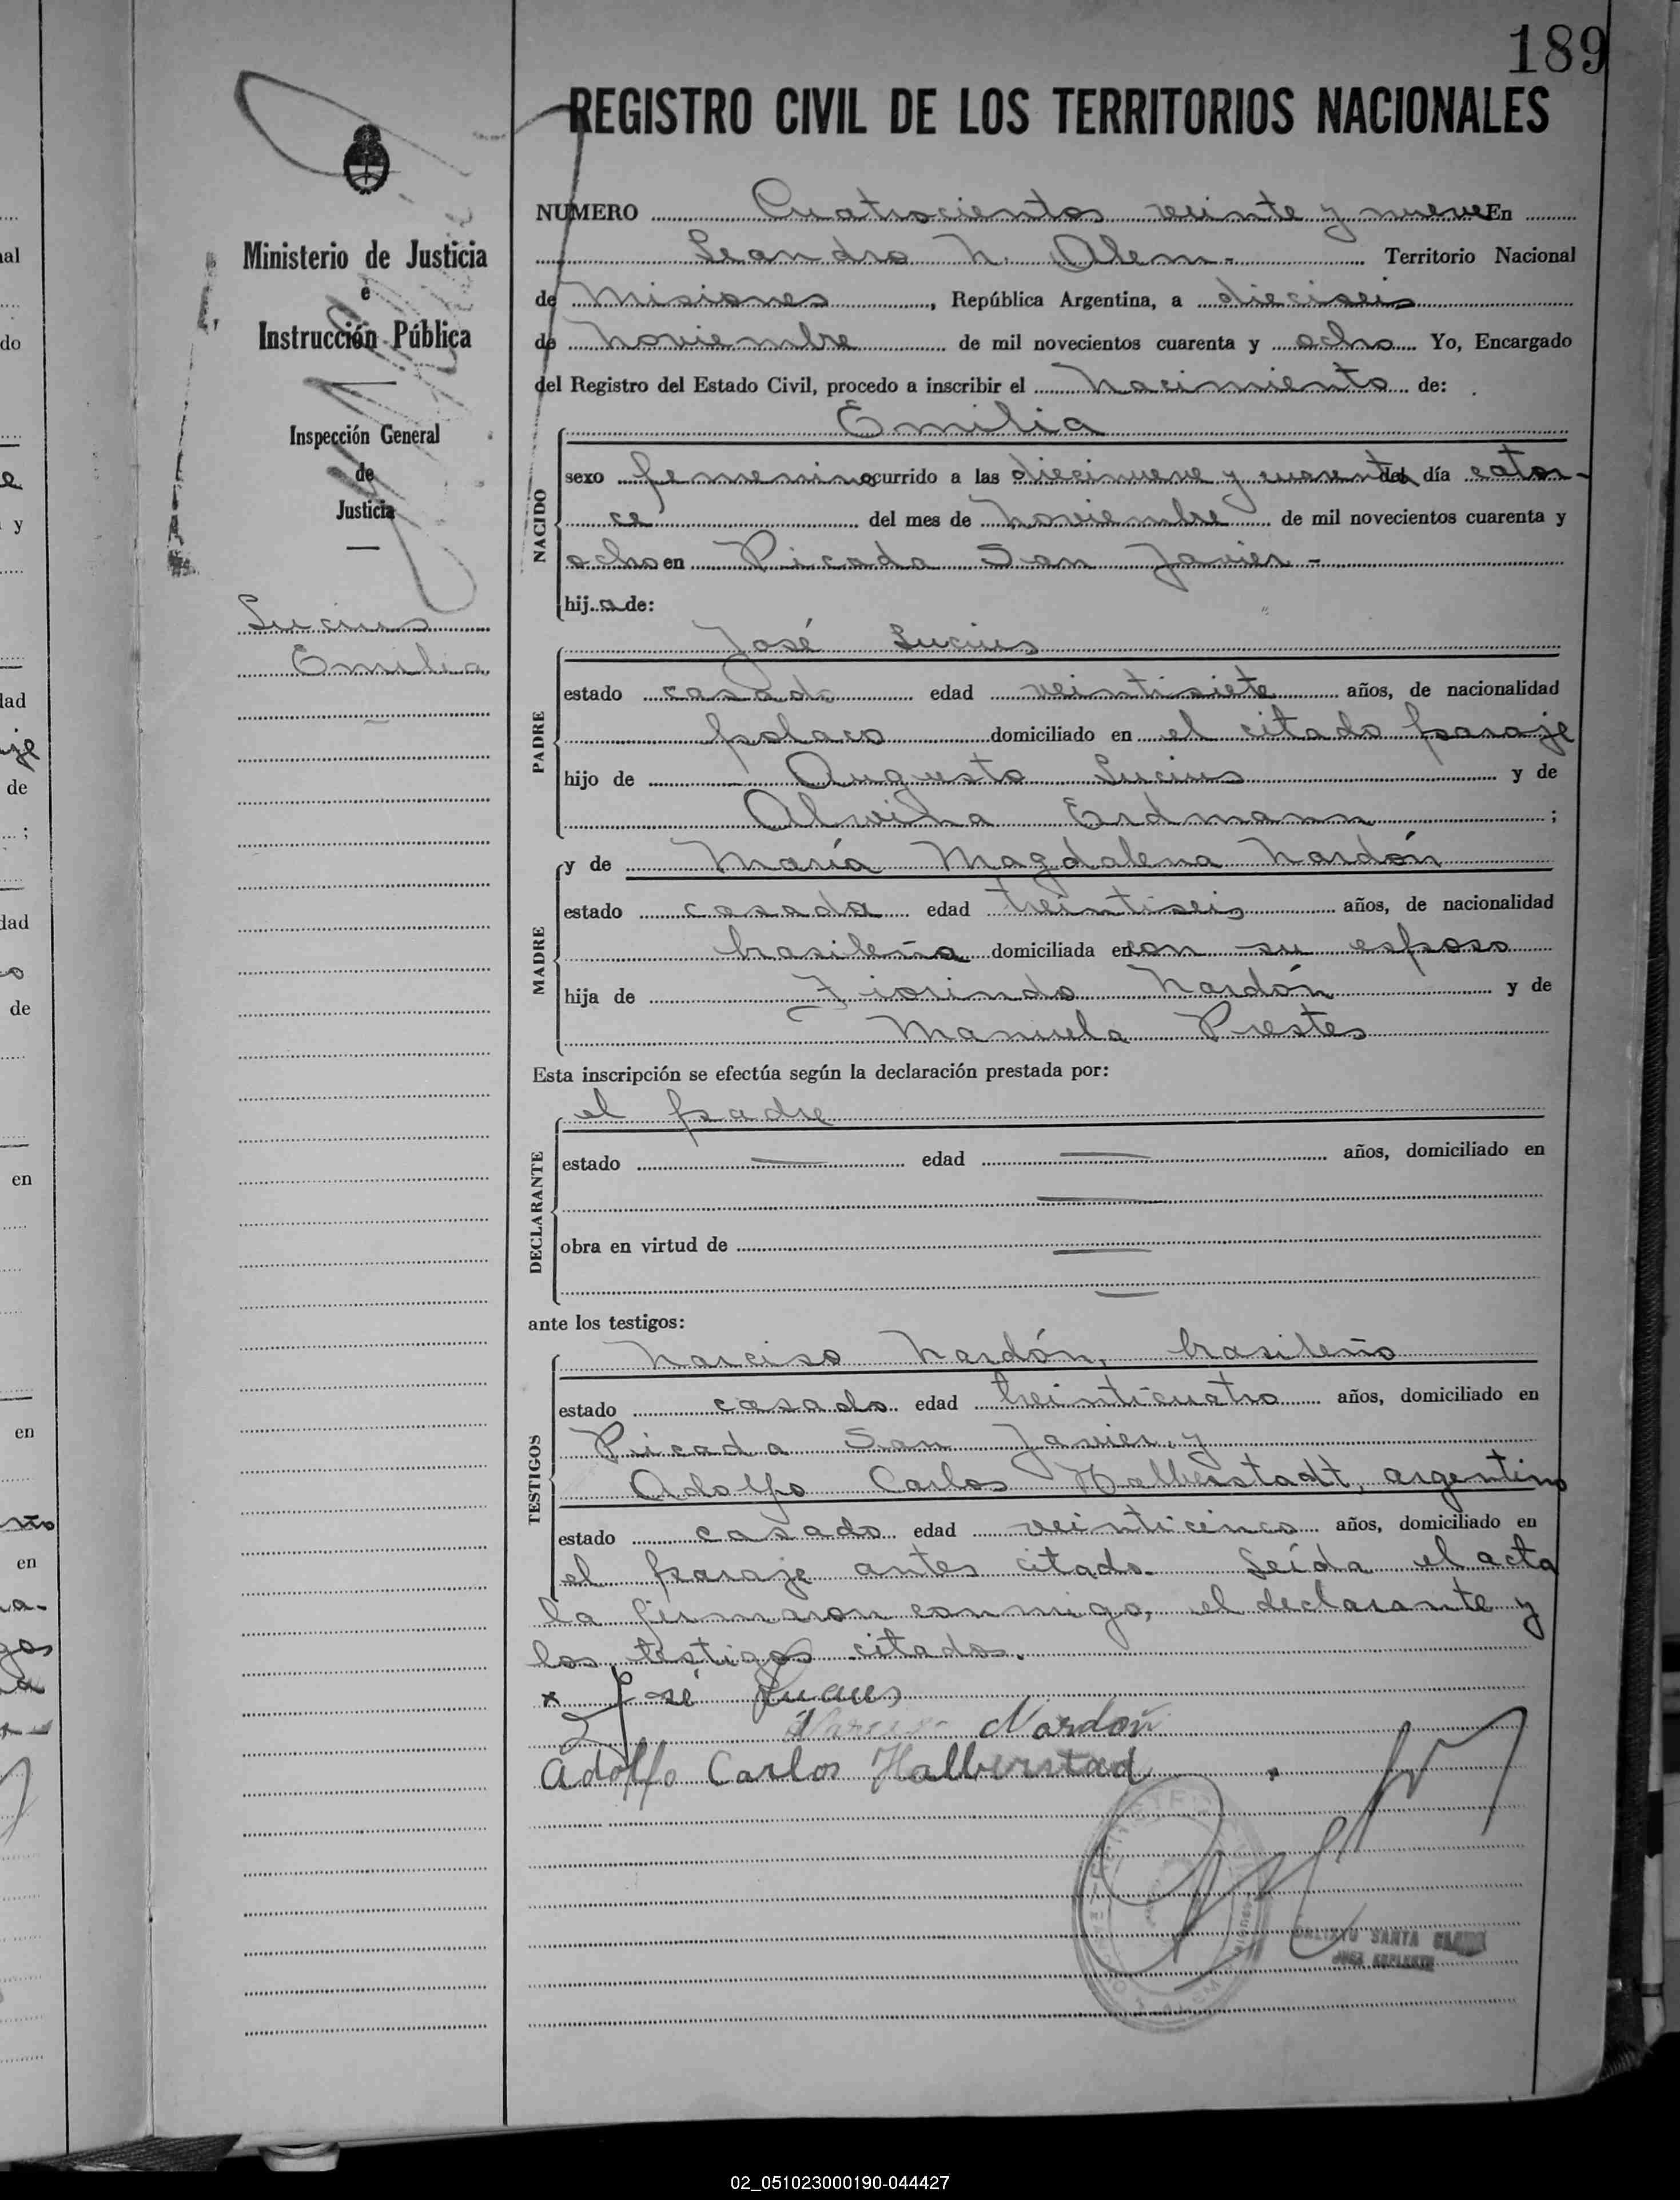 189
REGISTRO CIVIL DE LOS TERRITORIOS NACIONALES
Ministerio de Justicia
e
Instrucción Pública
Inspección General
de
Justicia
Lucius
Emilia
NUMERO Cuatrocientos veinte y nueve En
Leandro N. Alem.- Territorio Nacional
de Misiones, República Argentina, a dieciseis
de Noviembre de mil novecientos cuarenta y ocho Yo, Encargado
del Registro del Estado Civil, procedo a inscribir el Nacimiento de:
NACIDO
Emilia
sexo femenino ocurrido a las diecinueve y cuarenta del día cator-
ce del mes de Noviembre de mil novecientos cuarenta y
ocho en Picada San Javier -
hij a de:
PADRE
José Lucius
estado casado edad veintisiete años, de nacionalidad
polaco domiciliado en el citado paraje
hijo de Augusto Lucius y de
Alvina Erdmann ;
MADRE
y de María Magdalena Nardón
estado casada edad treintiseis años, de nacionalidad
brasileña domiciliada en con su esposo
hija de Fiorindo Nardón y de
Manuela Prestes
Esta inscripción se efectúa según la declaración prestada por:
DECLARANTE
el padre
estado — edad — años, domiciliado en
—
obra en virtud de —
—
ante los testigos:
TESTIGOS
Narciso Nardón, brasileño
estado casado edad treinticuatro años, domiciliado en
Picada San Javier, y
Adolfo Carlos Halberstadt, argentino
estado casado edad veinticinco años, domiciliado en
el paraje antes citado. Leída el acta
la firmaron conmigo, el declarante y
los testigos citados.
x José Lucius
Narciso Nardon
Adolfo Carlos Halberstad
SANTA
JUEZ SUPLENTE
al
do
e
y
dad
aje
de
;
dad
o
de
en
en
en
a-
gos
02_051023000190-044427